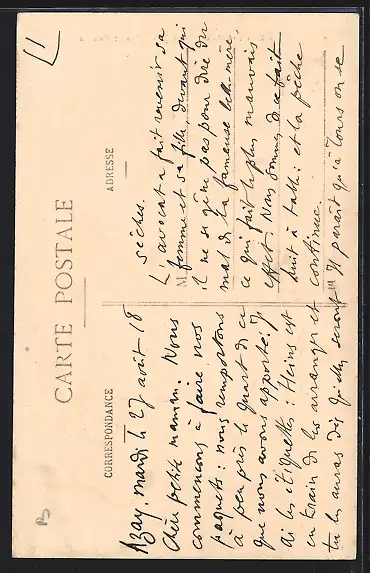 CARTE POSTALE
CORRESPONDANCE
ADRESSE
Azay, mardi le 27 août 18
Chère petite maman. Nous
commençons à faire nos
paquets: nous remportons
à peu près le quart de ce
que nous avons apporté. J'ai
di les étiquettes: Heins est
en train de les arranger et
tu les auras dès qu'elles seront
sèches.
L'avocat a fait revenir sa
femme et sa fille, devant qui
il ne se gêne pas pour dire du
mal de la fameuse belle-mère
ce qui fait le plus mauvais
effet. Nous sommes de ce fait
huit à table: et la pêche
continue.
Il paraît qu'à Tours on se